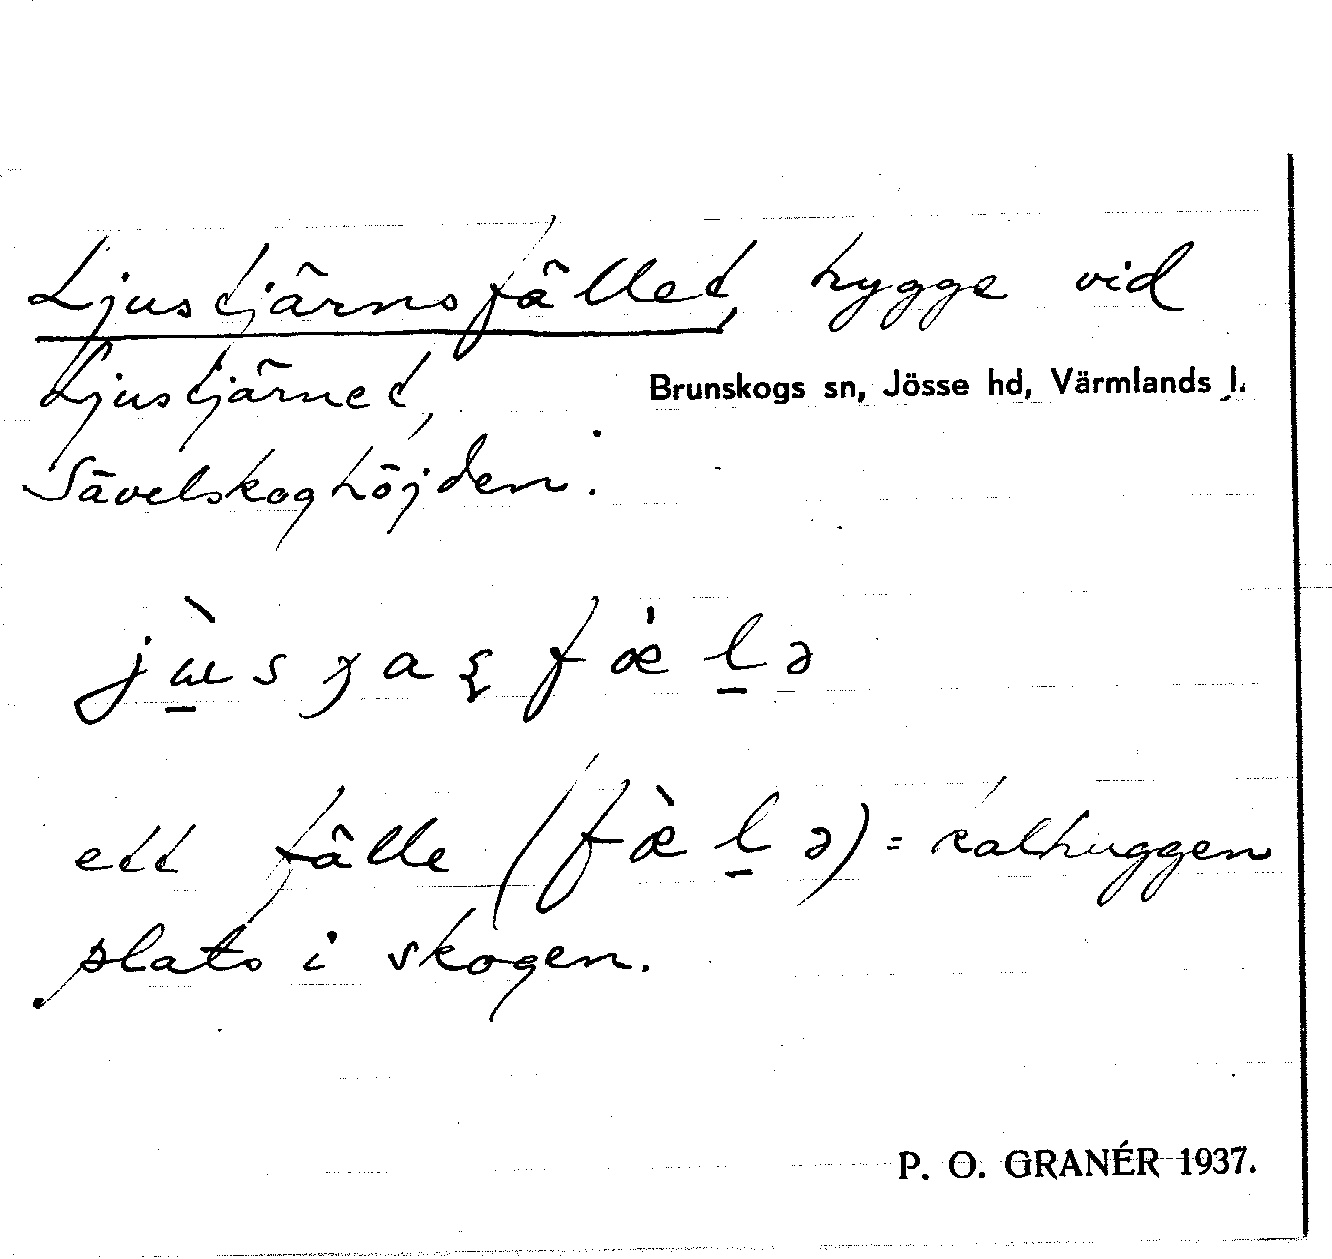 Ljustjärnsfället, hygge vid
Ljustjärnet,
Brunskogs sn, Jösse hd, Värmlands l.
Sävelskoghöjden.
ett fälle (fæ̀l̠ə) = kalhuggen
plats i skogen.
P. O. GRANÉR 1937.